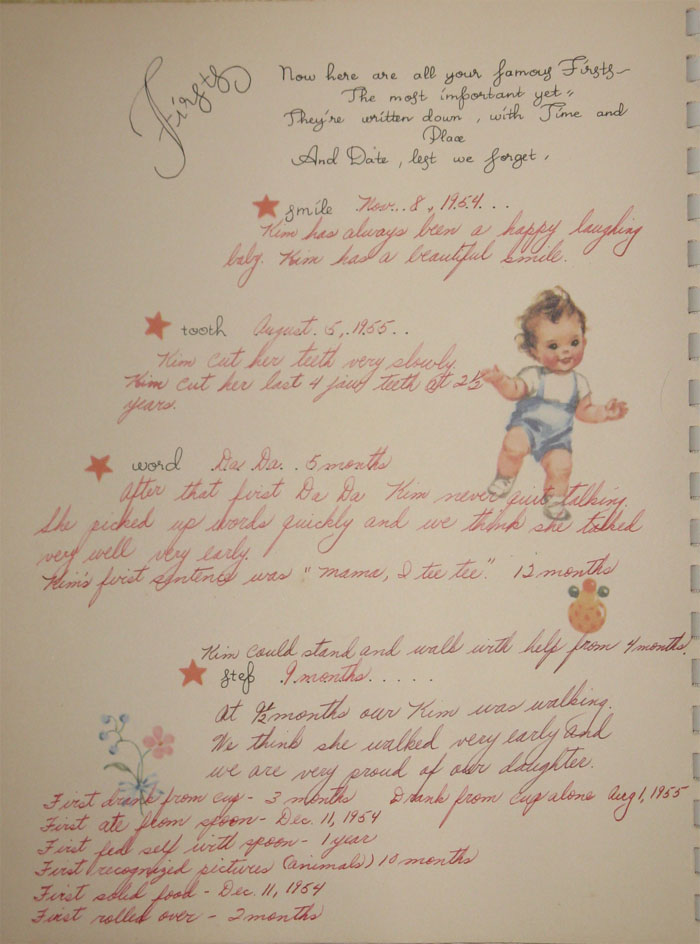 Firsts
Now here are all your famous Firsts~
The most important yet,,
They're written down, with Time and
Place
And Date, lest we forget.
smile Nov. 8, 1954...
Kim has always been a happy laughing
baby. Kim has a beautiful smile.
tooth August. 5, 1955..
Kim cut her teeth very slowly.
Kim cut her last 4 jaw teeth at 2½
years.
word Da Da.. 5 months
After that first Da Da Kim never quit talking.
She picked up words quickly and we think she talked
very well very early.
Kim's first sentence was "mama, I tee tee". 12 months
Kim could stand and walk with help from 4 months.
step 9 months.....
At 9½ months our Kim was walking.
We think she walked very early and
we are very proud of our daughter.
First drank from cup - 3 months Drank from cup alone Aug 1, 1955
First ate from spoon - Dec. 11, 1954
First fed self with spoon - 1 year
First recognized pictures (animals) 10 months
First solid food - Dec. 11, 1954
First rolled over - 2 months